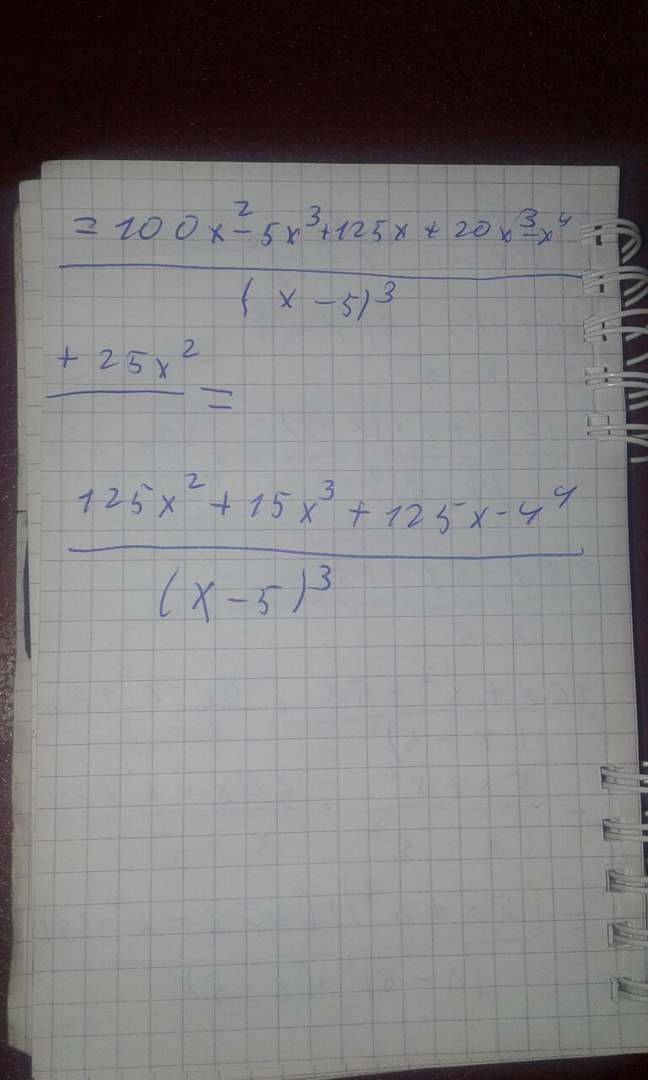 = 100x² - 5x³ + 125x + 20x³ - x⁴
(x - 5)³
+ 25x² =
125x² + 15x³ + 125x - 4⁴
(x - 5)³